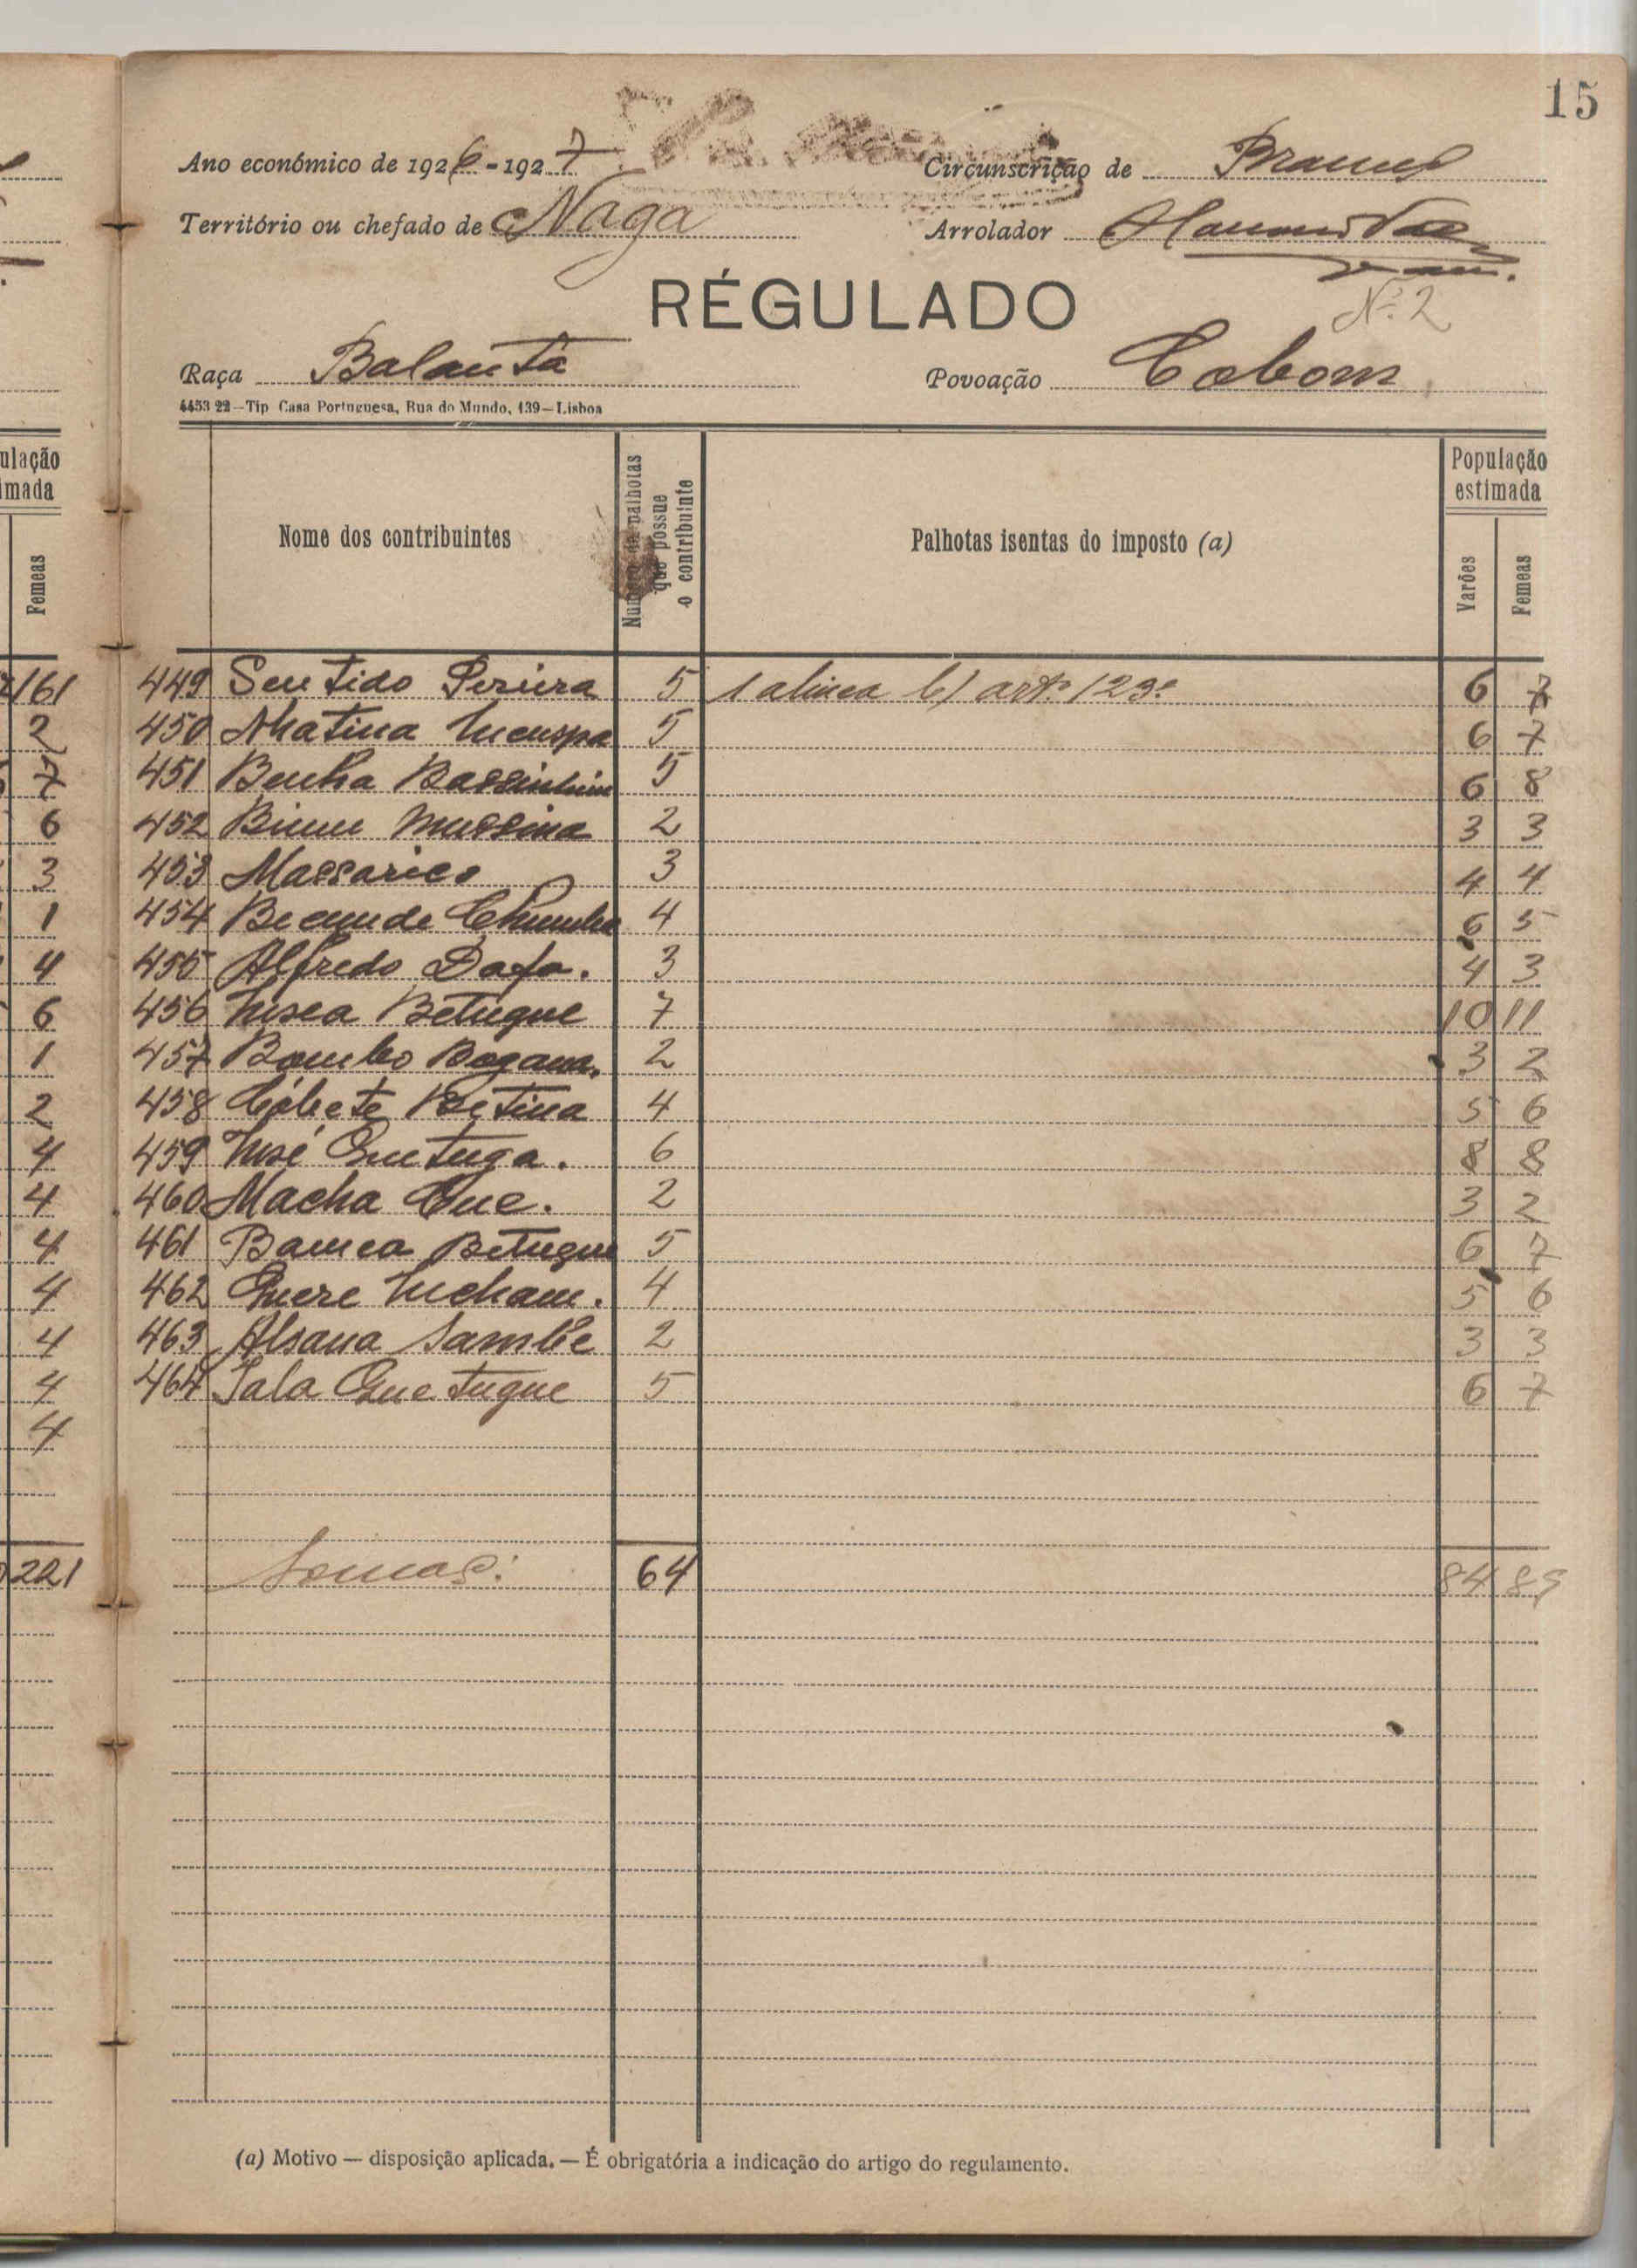 15
Ano económico de 1926-1927 Circunscrição de
Território ou chefado de Naga Arrolador
RÉGULADO
Nº 2
Raça Balanta Povoação Cobom
4453 22—Tip Casa Portuguesa, Rua do Mundo, 139—Lisboa
ulação
imada
Femeas
Nome dos contribuintes
Numero de palhotas que possue o contribuinte
Palhotas isentas do imposto (a)
População estimada
Varões Femeas
161 449 Sentido Pereira 5 1 alinea b) artº 123º 6 7
2 450 Nhatina 5 6 7
7 451 Benha 5 6 8
6 452 Mussina 2 3 3
3 453 Massarico 3 4 4
1 454 4 6 5
4 455 Alfredo Dafa. 3 4 3
6 456 Betugue 7 10 11
1 457 Bombo 2 3 2
2 458 Betina 4 5 6
4 459 Quetuga. 6 8 8
4 460 Macha Que. 2 3 2
4 461 Betugue 5 6 7
4 462 Quere 4 5 6
4 463 Alsana Sambe 2 3 3
4 464 Sala Quetugue 5 6 7
4
221 Somas: 64 84 89
(a) Motivo — disposição aplicada. — É obrigatória a indicação do artigo do regulamento.